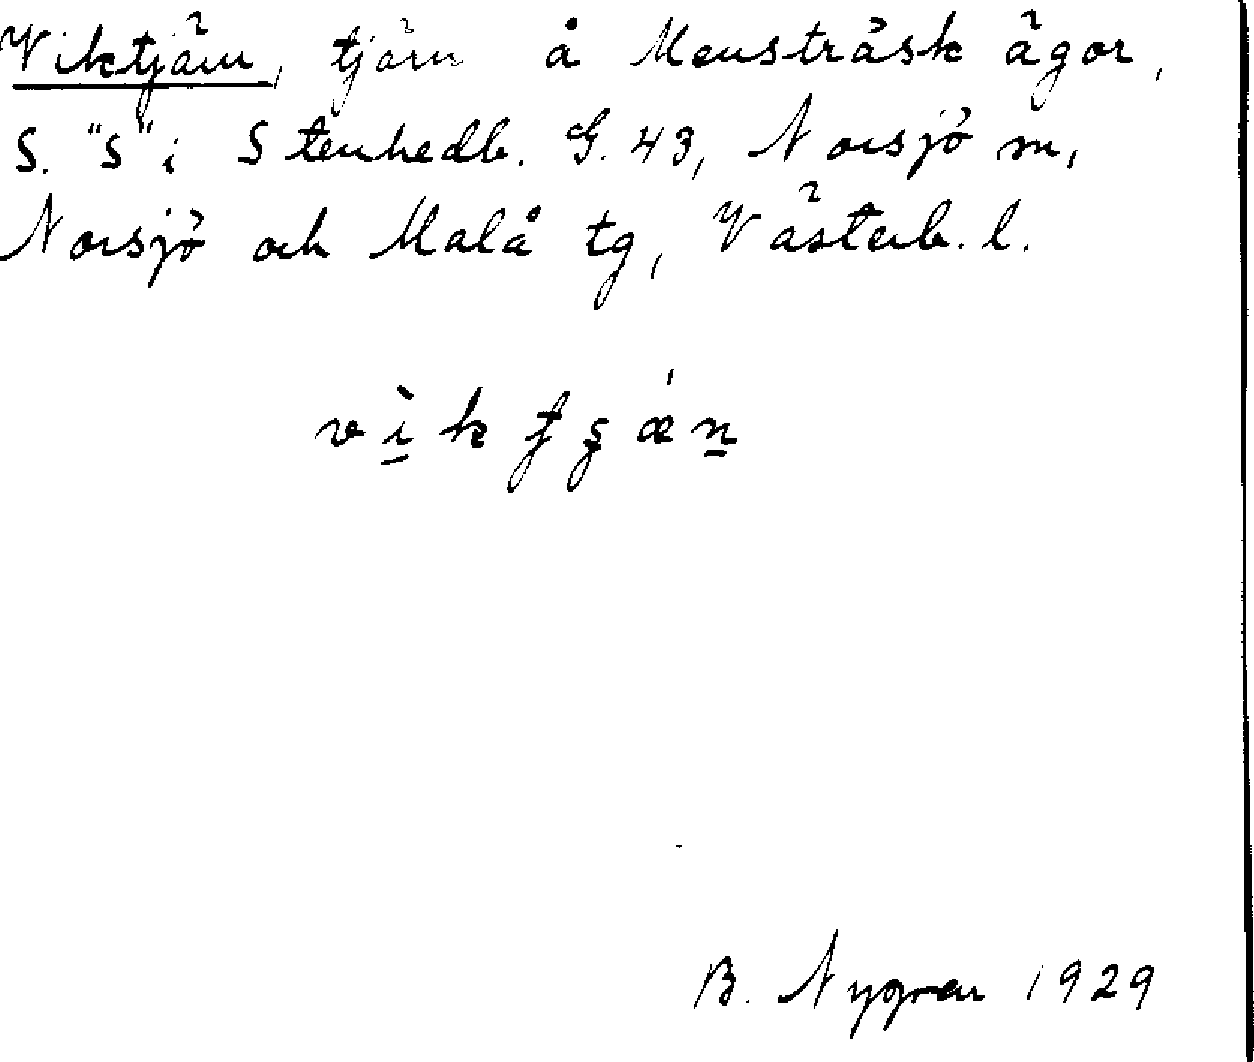 Viktjärn, tjärn å Mensträsk ägor,
S. "S" i Stenhedb. G. 43, Norsjö sn,
Norsjö och Malå tg, Västerb. l.
vìktşǽn
B. Nygren 1929